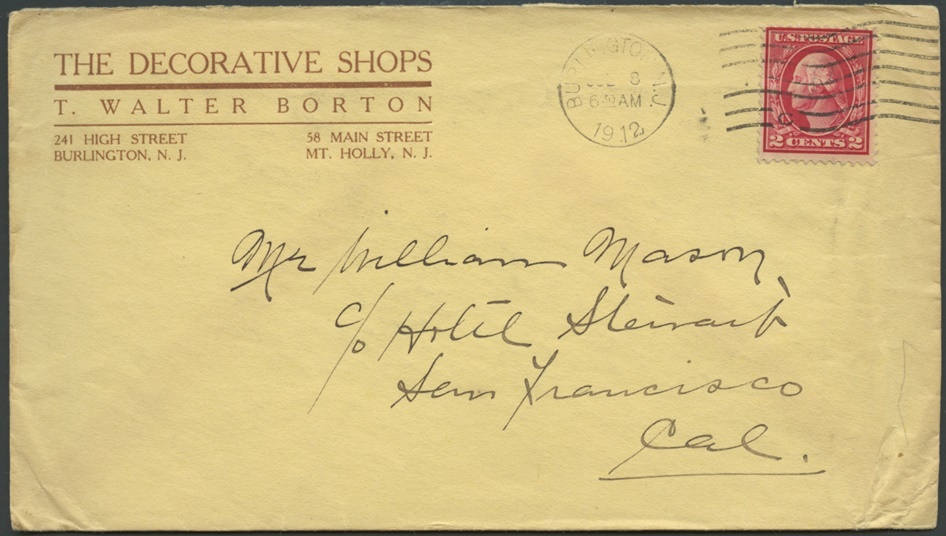 THE DECORATIVE SHOPS
T. WALTER BORTON
241 HIGH STREET
BURLINGTON, N. J.
58 MAIN STREET
MT. HOLLY, N. J.
BURLINGTON, N.J.
8
6 AM
1912
U.S. POSTAGE
2 CENTS 2
Mr William Mason,
c/o Hotel Stewart
San Francisco
Cal.